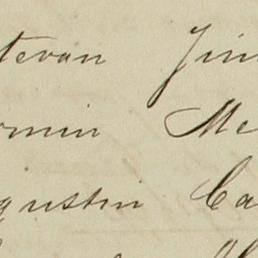 tevan Jim
rmin Me
gustin Ca